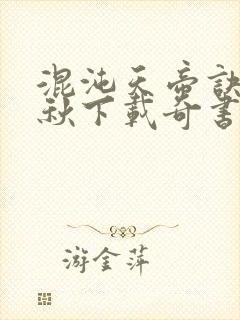 混沌天帝訣
秋下載奇書
游金萍